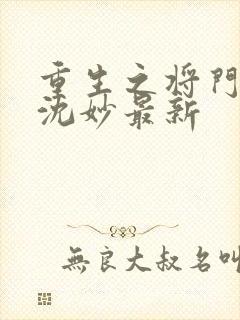 重生之将門
沈妙最新
無良大叔名叫